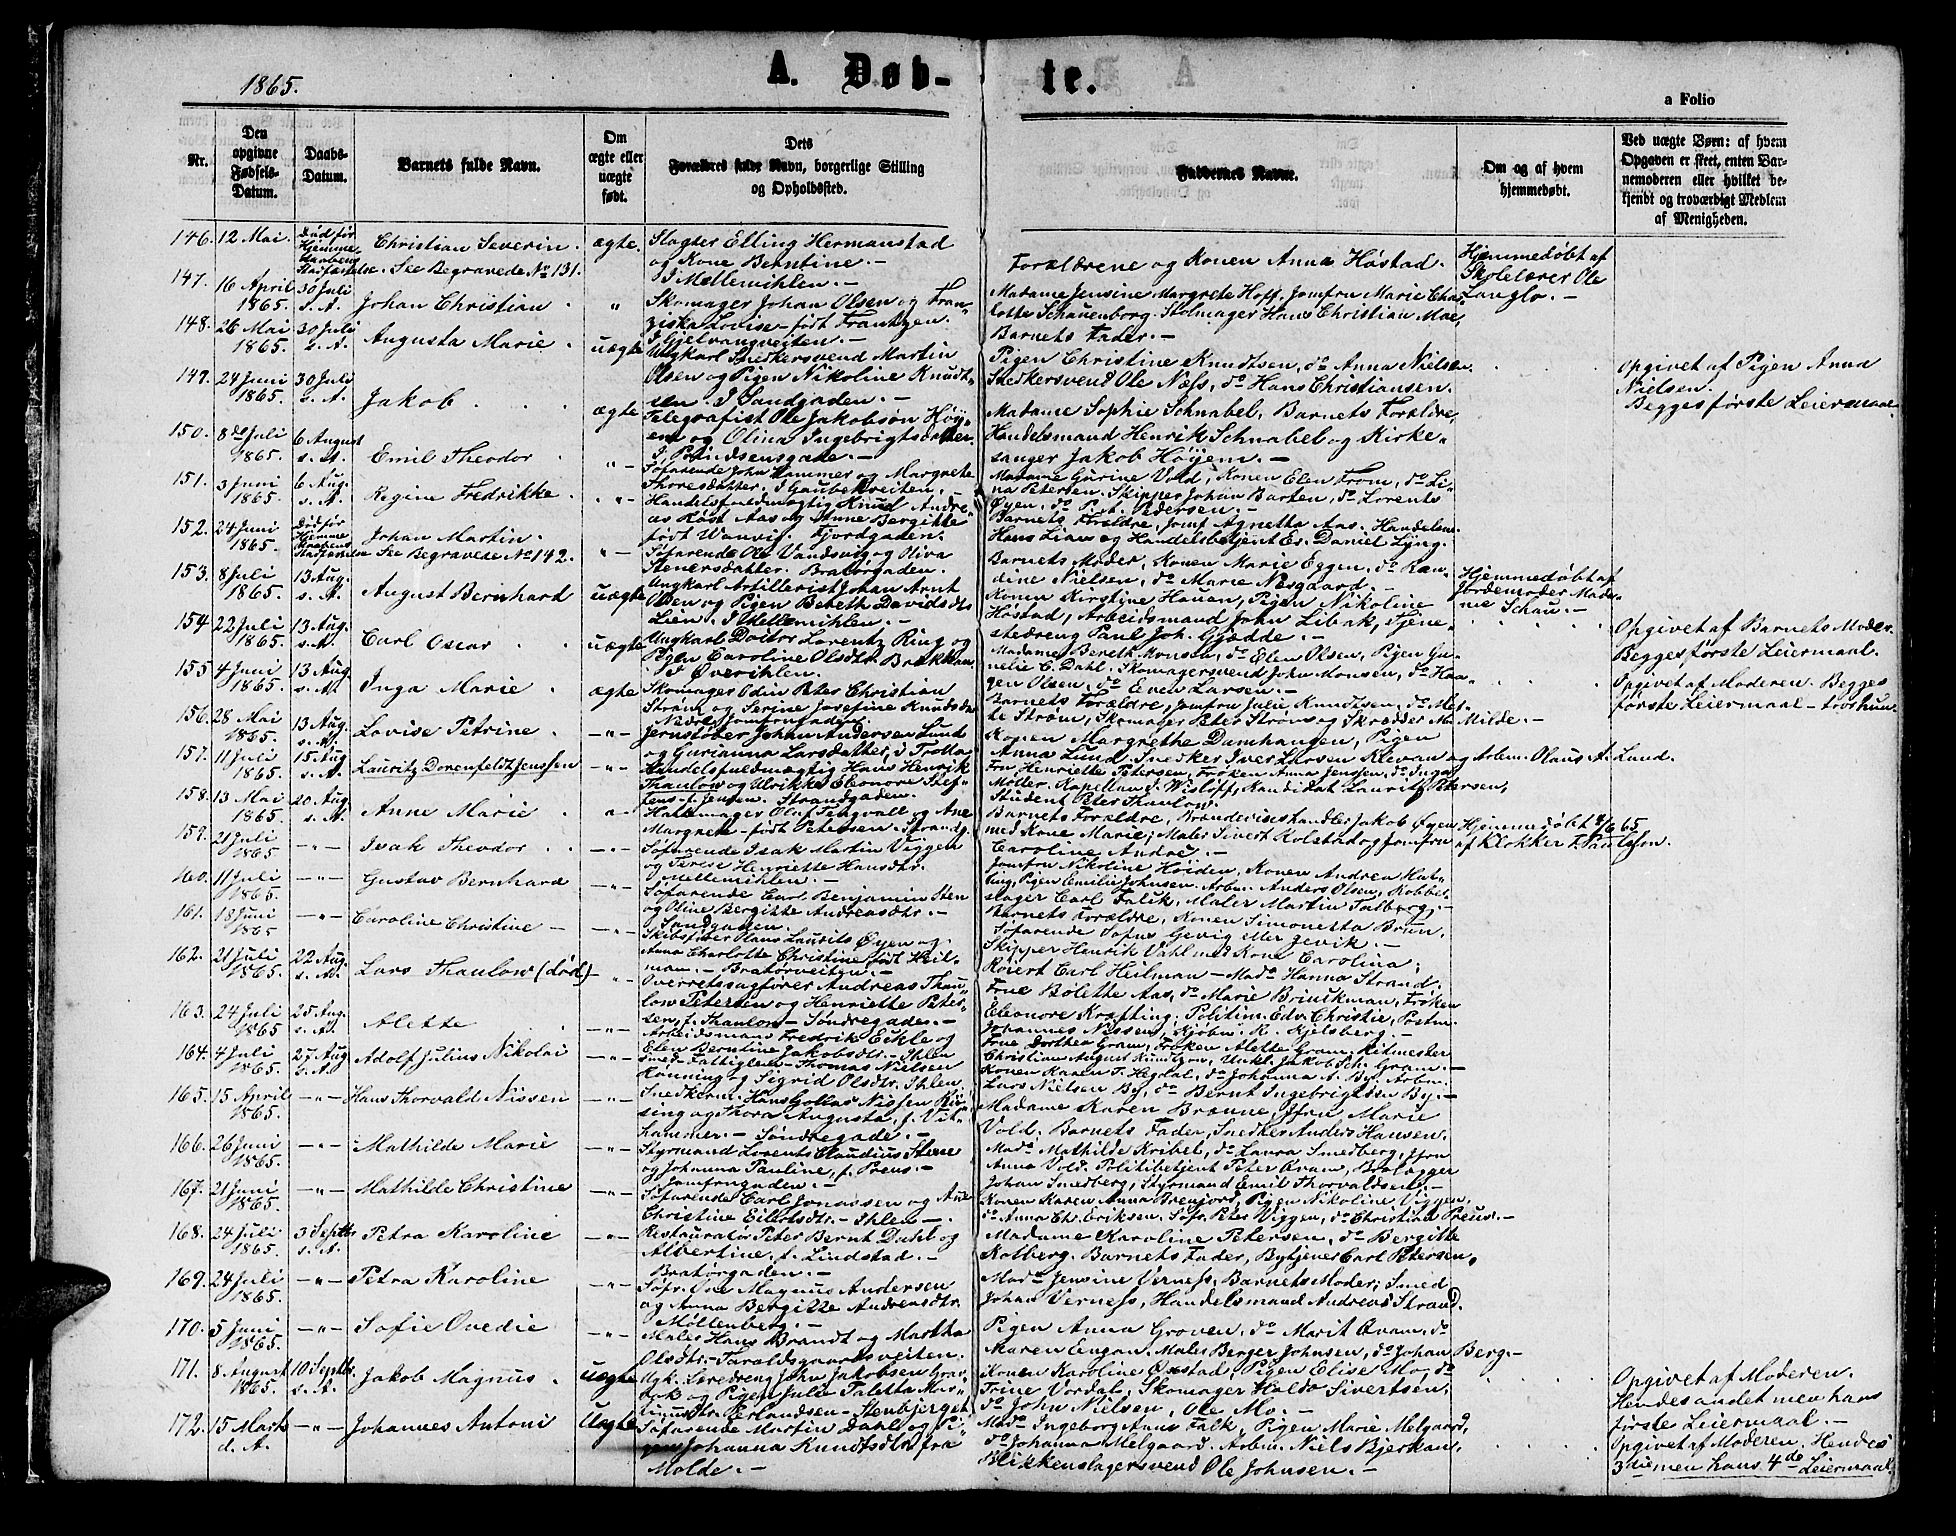 1865.
A. Døb-
te.
a Folio
Nr.
Den opgivne Fødsels-Datum.
Daabs-Datum.
Barnets fulde Navn.
Om ægte eller uægte født.
Dets Forældres fulde Navn, borgerlige Stilling og Opholdssted.
Faddernes Navne.
Om og af hvem hjemmedøbt.
Ved uægte Børn: af hvem Opgaven er skeet, enten Barnemoderen eller hvilket bekjendt og troværdigt Medlem af Menigheden.
146. 12 Mai. Død før Hjemmedaabens Stadfæstelse. Christian Severin. ægte.
See Begravede No 131.
Slagter Elling Hermanstad
og Kone Berntine.-
I Mellemihlen.-
Forældrene og Konen Anna Høstad.
Hjemmedøbt af
Skolelærer Ole
Langlo.-
147. 16 April 1865. 30 Juli s. A. Johan Christian "
Skomager Johan Olsen og Fran-
ziska Lovise født Frantzen.
I Gjelvangveiten.-
Madame Jensine Margrete Hoff. Jomfru Marie Char-
lotte Schauenborg. Stolmager Hans Christian Moe,
Barnets Fader.-
148. 26 Mai 1865. 30 Juli s. A. Augusta Marie uægte
Ungkarl Snedkersvend Martin
Olsen og Pigen Nikoline Knudt-
sen. I Sandgaden.-
Pigen Christine Knudtsen, do Anna Nielsen
Snedkersvend Ole Næss, do Hans Christiansen.
Opgivet af Pigen Anna
Nielsen.
Begges første Leiermaal
149. 24 Juni 1865. 30 Juli s. A. Jakob ægte
Telegrafist Ole Jakobson Høy-
em og Olina Ingebrigtsdatter.
Madame Sophie Schnabel, Barnets Forældre,
Handelsmand Henrik Schnabel og Kirke-
sanger Jakob Höyem.-
150. 8de Juli 1865. 6 August s. A. Emil Theodor -"-
Søfarende John Hammer og Margrete
Thoresdatter. I Gaubekveiten.-
Madame Gurine Vold, Konen Elen From, do Li-
na Petersen. Skipper Johan Barten, do Lorents
Øyen, do P. A. Pedersen.-
151. 3 Juni 1865. 6 Aug. s. A. Regine Fredrikke -"-
Handelsfuldmægtig Knud Andre-
as Røst Aas og Anne Bergitte
født Wanvif. Fjordgaden.
Barnets Forældre, Jomf Agnetha Aas. Handelsm.
Hans Lian og Handelsbetjent Es. Daniel Lyng.
152. 24 Juni 1865. Død før Hjemmedaabens Stadfæstelse Johan Martin. -"-
See Begravede No 142.
Søfarende Ole Vandsvig og Oliva
Stenersdatter. Bratørgaden.
Barnets Moder, Konen Marie Eggen, do Ran-
dine Nielsen, do Marie Nesgaard.
Hjemmedøbt af
Jordemoder Made-
nie Schau.-
153. 8 Juli 1865. 13 Aug. s. A. August Bernhard uægte
Ungkarl Artillerist Johan Arnt
Olsen og Pigen Bereth Davidsdtr
Lien. I Mellemihlen.-
Konen Kirstine Hauen, Pigen Nikoline
Høstad, Arbeidsmand John Libak, Tjene-
stedreng Paul Joh. Gjædde.-
Opgivet af Barnets Moder.
Begges første Leiermaal.
154 22 Juli 1865. 13 Aug. s. A. Carl Oscar uægte
Ungkarl Doctor Lorentz Ring og
Pigen Caroline Olsdtr. Brækkan
I Øverihlen.
Madame Bereth Monsen, do Elen Olsen, Pigen Gu-
nelie C. Dahl. Skomagersvend John Monsen, do Haa-
gen Olsen, do Even Larsen.-
Opgivet af Moderen. Begges
første Leiermaal - troshun
155 4 Juni 1865. 13 Aug. s. A. Inga Marie ægte
Skomager Odin Peter Christian
Strøm og Serine Josefine Knudsdtr
Nedre Jomfrugaden.
Barnets Forældre, Jomfru Julie Knudtsen, do Met-
te Strøm, Skomager Peter Strøm og Skrædder M. Milde.-
156. 28 Mai 1865. 13 Aug. s. A. Lovise Petrine -"-
Jernstøber Johan Andersen Lund
og Gurianna Larsdatter, i Trolla
Konen Margrethe Damhaugen, Pigen
Anna Lund. Snedker Iver Larsen Klevan og Arbm. Olaus A. Lund.
157. 11 Juli 1865. 15 Aug. s. A. Lauritz Dorenfeldt Jenssen -"-
Handelsfuldmægtig Hans Henrik
Thaulow og Ulrikke Eleonore Stef-
fens f. Jensen. Strandgaden.
Fru Henriette Petersen, Frøken Anna Jenssen, do Inga
Møller. Kapellan O. Wisløff, Kandidat Lauritz Petersen,
Student Peter Thaulow.
158. 13 Mai 1865. 20 Aug. s. A. Anne Marie -"-
Hattemager Oluf Tengvall og Ane
Margrete født Petersen. Strandg.
Barnets Forældre, Brændeviinshandler Jakob Øyen
med Kone Marie; Maler Sivert Rolstad og Jomfru
Caroline Andre.-
Hjemmedøbt 4/6 65
af Klokker F. Paulsen.
159. 21 Juli 1865 -"- Isak Theodor -"-
Søfarende Isak Martin Viggen
og Terese Henriette Hansdtr.
Mellemihlen.-
Jomfru Nikoline Høiden, Konen Andrea Hat-
ling, Pigen Emilie Johnsen. Arbm. Anders Olsen, Kobber-
slager Carl Falik, Maler Martin Talberg.-
160. 11 Juli 1865. -"- Gustav Bernhard -"-
Søfarende Carl Benjamin Sten
og Oline Bergitte Andreasdtr.-
Sandgaden.
Barnets Forældre, Konen Simonetta Bruun.
Søfarende Sofus Gevig eller Jevik.-
161. 18 Juni 1865 -"- Caroline Christine - -"-
Skibsfører Hans Laurits Øyen og
Anna Charlotte Christine født Heil-
man.- Bratørveiten.-
Skipper Henrik Vahl med Kone Carolina;
Reiert Carl Heilman - Mad. Hanna Strand.
162. 21 Juli 1865. 22 Aug. s. A. Lars Thaulow (død) -"-
Overretssagfører Andreas Thau-
low Petersen og Henriette Peter-
sen, f. Thaulow - Søndregade.-
Frue Bolette Aas, do Marie Brinckman, Frøken
Eleonore Krefting; Politim. Edv. Christie, Postm.
Johannes Nissen, Kjøbm. K. Kjelsberg.-
163. 24 Juli 1865. 25 Aug. s. A. Alette -"-
Arbeidsmand Fredrik Eekle og
Elen Berntine Jakobsdtr. - Ihlen
Frue Dorthea Gram, Frøken Alette Gram, Ritmester
164. 4 Juli 1865. 27 Aug s. A. Adolf Julius Nikolai -"-
Smed-Fattiglem - Thomas Nielsen
Rønning og Sigrid Olsdtr. Ihlen
Konen Karen T. Hegdal, do Johanna A. By, Arbm.
Lars Nielsen By, do Bernt Ingebrigtsen By.-
165. 15 April 1865. -"- Hans Thorvald Nissen -"-
Snedkerm. Hans Gollas Nissen Rü-
sing og Thora Augusta, f. Vit-
hammer.- Søndregade.-
Madame Karen Brønne, Jfru Marie
Vold. Barnets Fader, Snedker Anders Hansen.
166. 26 Juni 1865. -"- Mathilde Marie -"-
Styrmand Lorents Claudius Stene
og Johanna Pauline, f. Preus.-
Jomfrugaden.-
Mad. Mathilde Kribel, do Laura Smedberg, Jfru
Anna Vold. Politibetjent Peter Qvam, Bødagger
Johan Smedberg, Styrmand Emil Thorvaldsen.-
167. 21 Juni 1865. -"- Mathilde Christine -"-
Søfarende Carl Jonassen og Ane
Christine Eilertsdtr.- Ihlen-.
Konen Karen Anna Brenjord, Pigen Nikoline Viggen,
do Anna Chr. Eriksen. Søfr. Peter Viggen, do Christian Preus.-
168. 24 Juli 1865. 3 Septbr s. A. Petra Karoline -"-
Restauratør Peter Bernt Dahl og
Albertine, f. Lindstad.-
Bratørgaden.-
Madame Karoline Petersen, do Bergitte
Kolberg. Barnets Fader, Bytjener Carl Petersen.
169. 24 Juli 1865. -"- Petra Karoline -"-
Søfr. Ove Magnus Andersen
og Anna Bergitte Andreasdtr.
Møllenberg.-
Mad. Jensine Verness, Barnets Moder; Smed
Johan Verness, Handelsmand Andreas Strand.
170. 5 Juni 1865. -"- Sofie Ovedie -"-
Maler Hans Brandt og Martha
Olsdtr.- Taraldsgaardsveiten.
Pigen Anna Groven, do Marit Qvam, do
Maren Engan. Maler Berger Johnsen, do Johan Berg.-
171. 8 August 1865. 10 Septbr. s. A. Jakob Magnus uægte
Ugk. Leredreng John Jakobsen Grav-
bok og Pigen Julie Taletta Mar-
tinusdtr. Perlandsen - Stenbjerget
Konen Karoline Oxstad, Pigen Elise Mo, do
Trine Vordal, Skomager Haldo Sivertsen,
do John Nielsen, Ole Mo.-
Opgivet af Moderen.
Hendes andet men hans
første Leiermaal.-
172. 15 Marts d. A. -"- Johannes Antoni Uægte
Søfarende Martin Dahl og Pi-
gen Johanna Knudtsdtr fra
Molde.-
Mad. Ingeborg Anna Falk, Pigen Marie Melgaard,
do Johanna Melgaard. Arbm. Niels Bjerkan,
Blikkenslagersvend Ole Johnsen.-
Opgivet af Moderen. Hendes
3die men hans 4de Leiermaal.